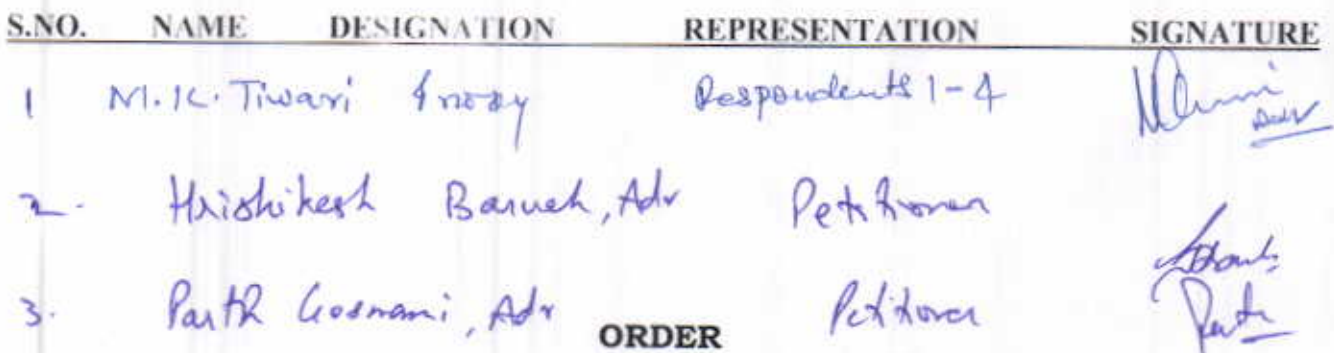 S.NO. NAME DESIGNATION REPRESENTATION SIGNATURE
1 M.K. Tiwari Respondents 1-4
2. Hrishikesh Baruah, Adv Petitioner
3. Parth Goswami, Adv Petitioner
ORDER